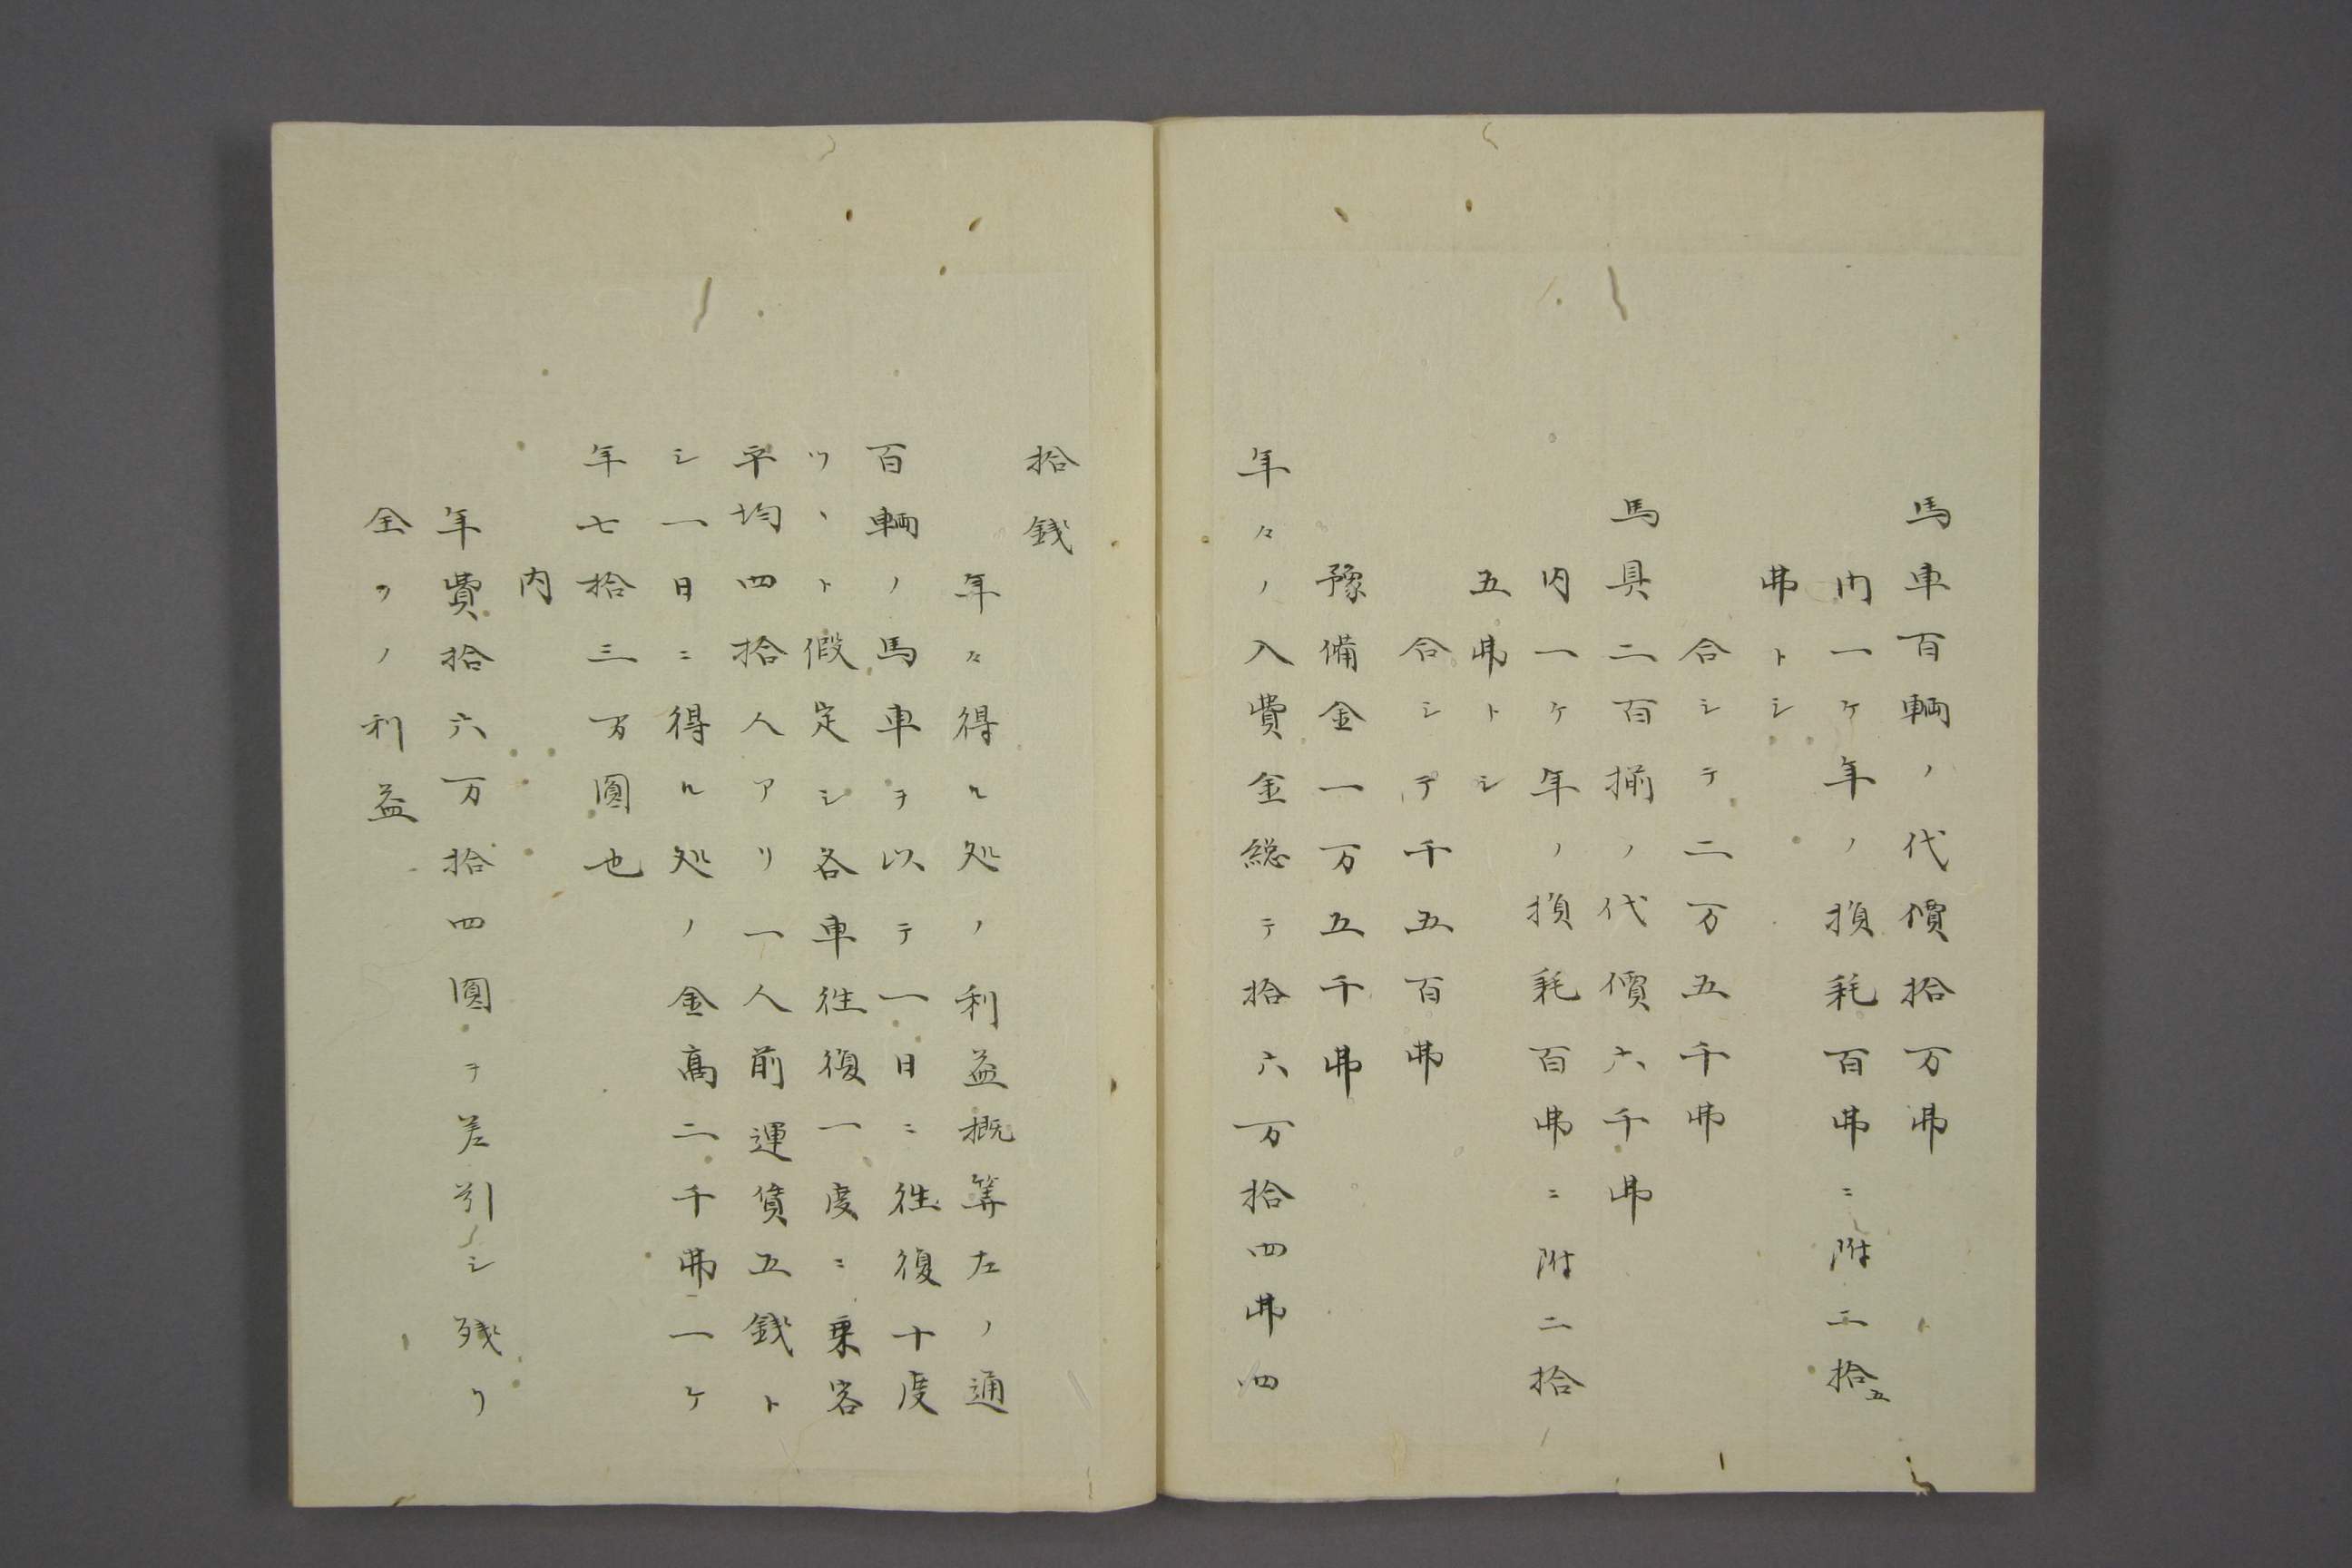 馬車百輌ノ代價拾万弗
内一ケ年ノ損耗百弗ニ附二拾五
弗トシ
合シテ二万五千弗
馬具二百揃ノ代價六千弗
内一ケ年ノ損耗百弗ニ附二拾
五弗トシ
合シテ千五百弗
豫備金一万五千弗
年々ノ入費金総テ拾六万拾四弗四
拾銭
年々得ル処ノ利益概算左ノ通
百輌ノ馬車ヲ以テ一日ニ往復十度
ツヽト假定シ各車往復一度ニ乗客
平均四拾人アリ一人前運賃五銭ト
シ一日ニ得ル処ノ金高二千弗一ケ
年七拾三万圓也
内
年費拾六万拾四圓ヲ差引シ残リ
全クノ利益